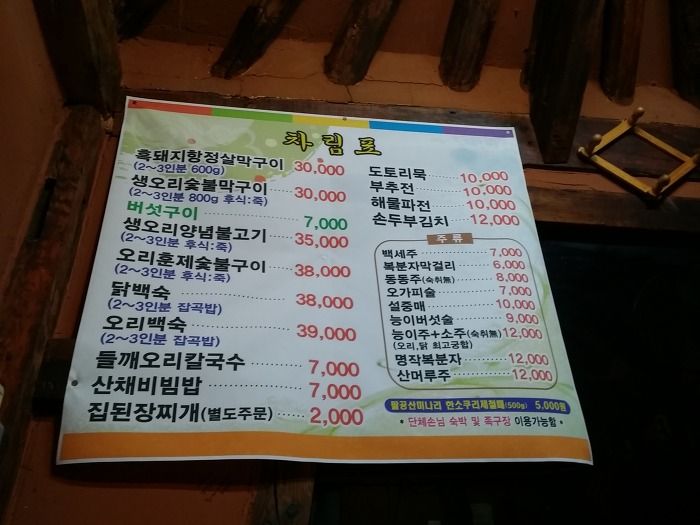 차림표
흑돼지항정살막구이 30,000
(2~3인분 600g)
생오리숯불막구이 30,000
(2~3인분 800g 후식:죽)
버섯구이 7,000
생오리양념불고기 35,000
(2~3인분 후식:죽)
오리훈제숯불구이 38,000
(2~3인분 후식:죽)
닭백숙 38,000
(2~3인분 잡곡밥)
오리백숙 39,000
(2~3인분 잡곡밥)
들깨오리칼국수 7,000
산채비빔밥 7,000
집된장찌개(별도주문) 2,000
도토리묵 10,000
부추전 10,000
해물파전 10,000
손두부김치 12,000
주 류
백세주 7,000
복분자막걸리 6,000
동동주(숙취無) 8,000
오가피술 7,000
설중매 10,000
능이버섯술 9,000
능이주+소주(숙취無) 12,000
(오리,닭 최고궁합)
명작복분자 12,000
산머루주 12,000
팔공산미나리 한소쿠리제철때(500g) 5,000원
* 단체손님 숙박 및 족구장 이용가능함 *